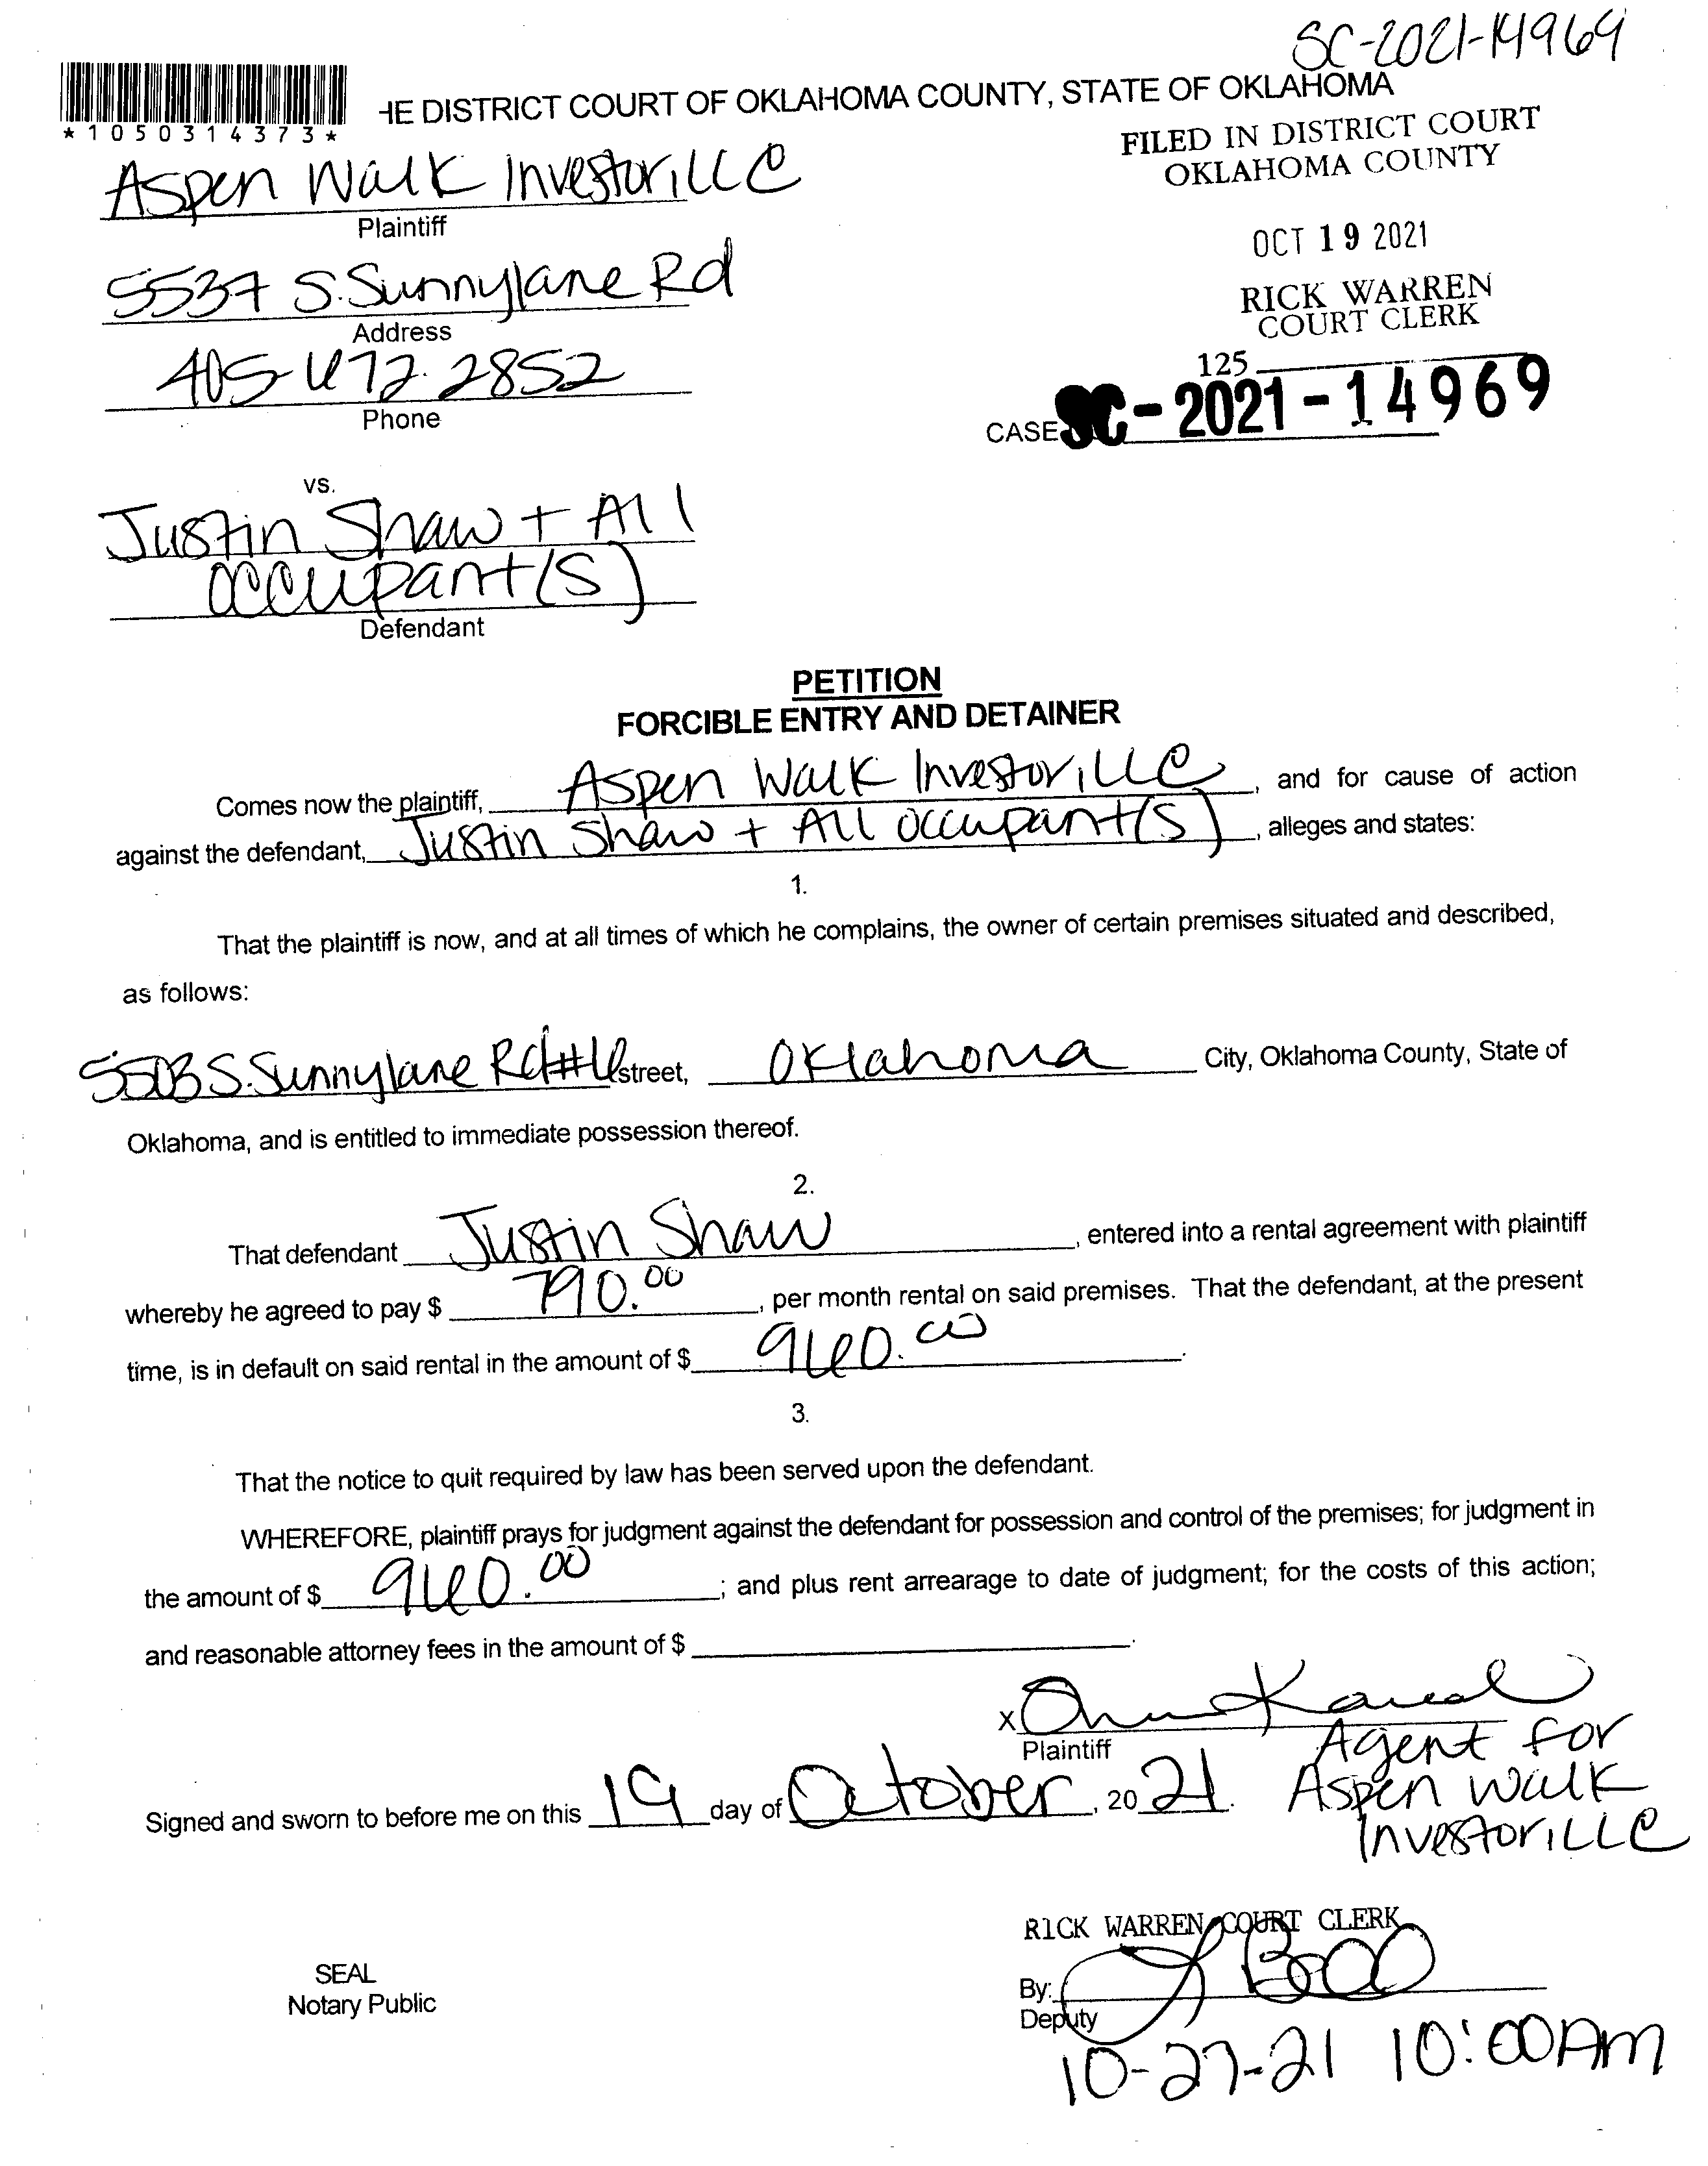 SC-2021-14969
HE DISTRICT COURT OF OKLAHOMA COUNTY, STATE OF OKLAHOMA
*1050314373*
FILED IN DISTRICT COURT
OKLAHOMA COUNTY
Aspen Walk Investor, LLC
Plaintiff
OCT 19 2021
5537 S. Sunnylane Rd
Address
RICK WARREN
COURT CLERK
405-672-2852
Phone
125
CASE SC-2021-14969
vs.
Justin Shaw + All
occupant(s)
Defendant
PETITION
FORCIBLE ENTRY AND DETAINER
Comes now the plaintiff, Aspen Walk Investor, LLC, and for cause of action
against the defendant, Justin Shaw + All occupant(s), alleges and states:
1.
That the plaintiff is now, and at all times of which he complains, the owner of certain premises situated and described,
as follows:
5503 S. Sunnylane Rd #6 street, Oklahoma City, Oklahoma County, State of
Oklahoma, and is entitled to immediate possession thereof.
2.
That defendant Justin Shaw, entered into a rental agreement with plaintiff
whereby he agreed to pay $ 790.00, per month rental on said premises. That the defendant, at the present
time, is in default on said rental in the amount of $ 960.00.
3.
That the notice to quit required by law has been served upon the defendant.
WHEREFORE, plaintiff prays for judgment against the defendant for possession and control of the premises; for judgment in
the amount of $ 960.00; and plus rent arrearage to date of judgment; for the costs of this action;
and reasonable attorney fees in the amount of $
X
Plaintiff
Agent for
Aspen Walk
Investor, LLC
Signed and sworn to before me on this 19 day of October, 2021.
RICK WARREN, COURT CLERK
SEAL
Notary Public
By:
Deputy
10-27-21 10:00AM